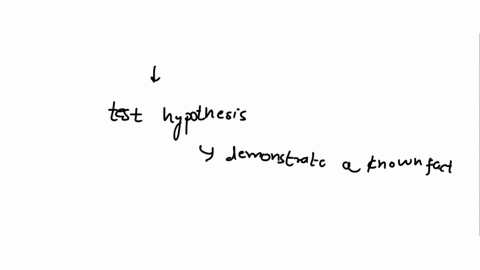 ↓
test hypothesis
↳ demonstrate a known fact